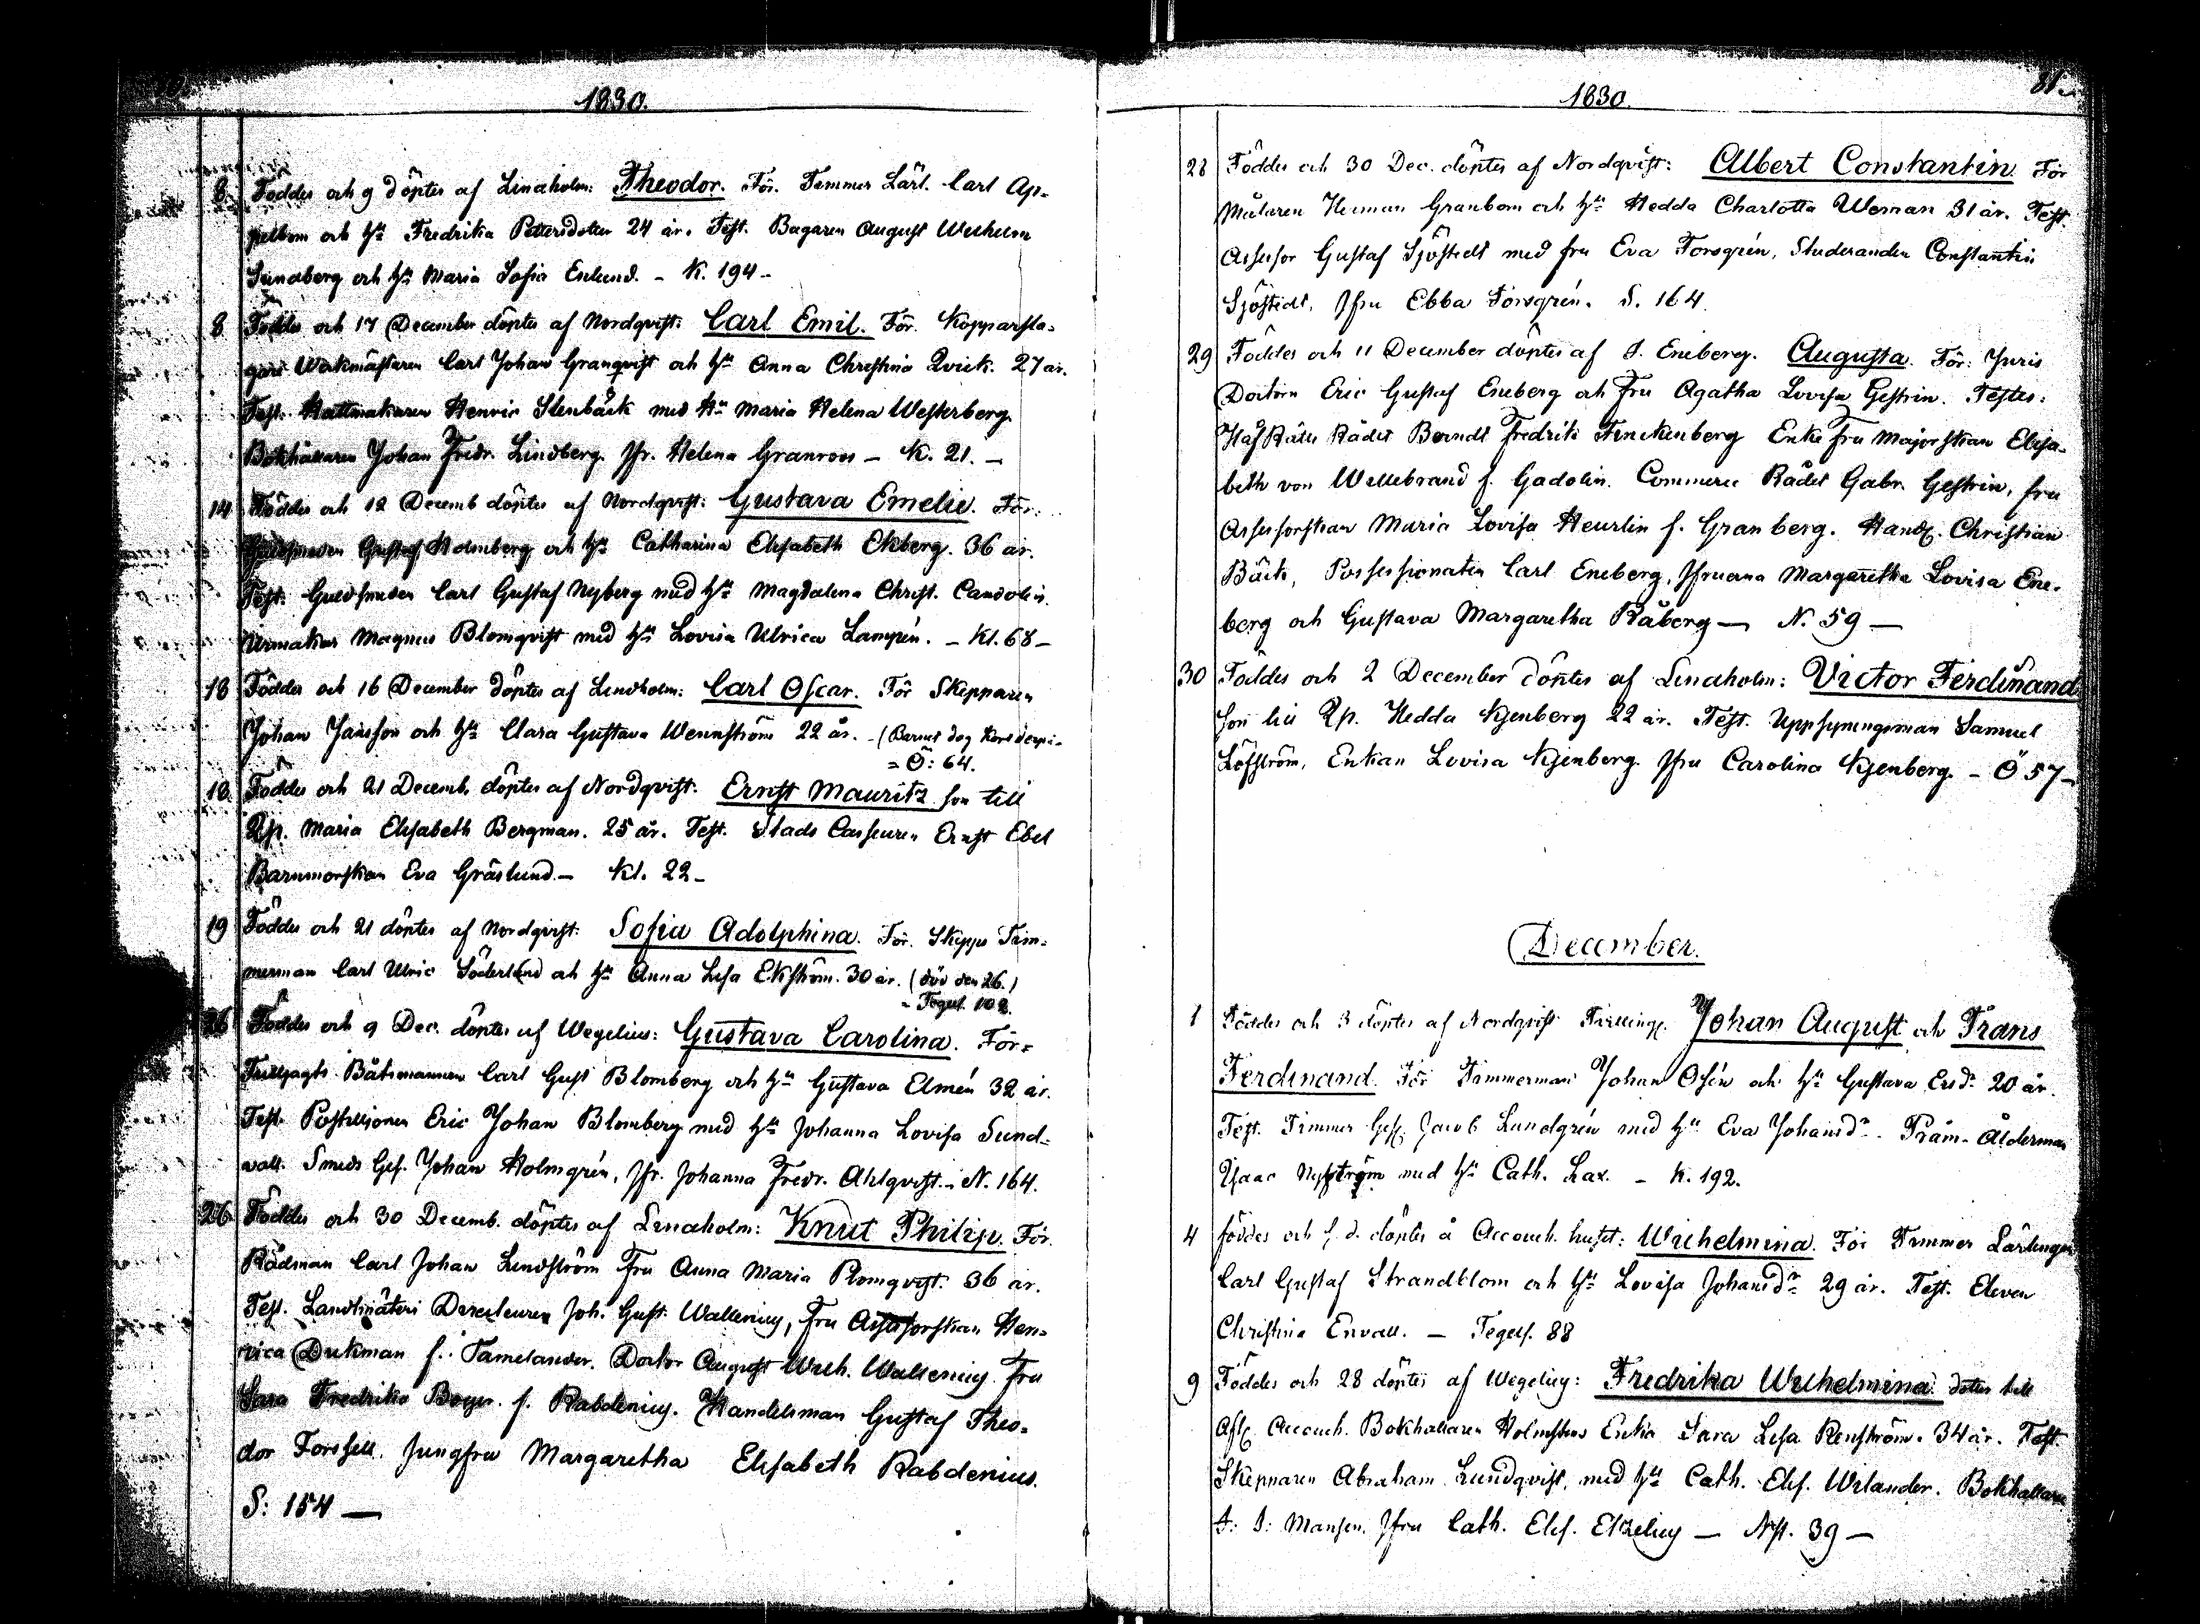 1830.
8 Föddes och 9 döptes af Lindholm: Theodor. För. Timmer Lärl. Carl Ap-
pelbom och h:u Fredrika Pettersdotter 24 år. Test. Bagaren August Wilhelm
Sundberg och h:u Maria Sofia Enlund. - K. 194 -
8 Föddes och 17 December döptes af Nordqvist: Carl Emil. För. Kopparsla-
gare Werkmästaren Carl Johan Granqvist och h:u Anna Christina Qvick. 27 år.
Test. Hattmakaren Henric Stenbäck med h:u Maria Helena Westerberg.
Bokhållaren Johan Fredr. Lindberg. Jfr. Helena Granroos - K. 21. -
14 Föddes och 12 Decemb döptes af Nordqvist: Gustava Emelie. För:
Guldsmeden Gustaf Holmberg och h:u Catharina Elisabeth Ekberg. 36 år.
Test. Guldsmeden Carl Gustaf Nyberg med h:u Magdalena Christ. Candolin.
Urmakar Magnus Blomqvist med h:u Lovisa Ulrica Lampén. - Kl. 68 -
18 Föddes och 16 December döptes af Lindholm: Carl Oscar. För Skepparen
Johan Jansson och h:u Clara Gustava Wennström 22 år. - (Barnet dog
= Ö: 64.
18 Föddes och 21 Decemb. döptes af Nordqvist: Ernst Mauritz son till
Qp. Maria Elisabeth Bergman. 25 år. Test. Stads Casseuren Ernst Ebel
Barnmorskan Eva Gräslund. - Kl. 22 -
19 Föddes och 21 döptes af Nordqvist: Sofia Adolphina. För. Skepps Tim-
merman Carl Ulric Söderlund och h:u Anna Lisa Ekström. 30 år. (död den 26.)
- Tegelf. 102.
26 Föddes och 9 Dec. döptes af Wegelius: Gustava Carolina. För=
Tulljagts Båtsmannen Carl Gust Blomberg och h:u Gustava Elmén 32 år.
Test. Postiljonen Eric Johan Blomberg med h:u Johanna Lovisa Sund-
wall. Smeds Ges. Johan Holmgrén, Jfr. Johanna Fredr. Ahlqvist. - N. 164.
26 Föddes och 30 Decemb. döptes af Lindholm: Knut Philip. För.
Rådman Carl Johan Lindström Fru Anna Maria Blomqvist 36 år.
Test. Landtmäteri Directeuren Joh. Gust. Wallenius, Fru Assessorskan Hen-
rica Dickman f.: Tamelander. Doctor August Wilh. Wallenius. Fru
Sara Fredrika Boyer. f. Rabdenius. Handelsman Gustaf Theo-
dor Forssell. Jungfru Margaretha Elisabeth Rabdenius.
S: 154 -
1830.
81
28 Föddes och 30 Dec. döptes af Nordqvist: Albert Constantin För
Målaren Herman Granbom och h:u Hedda Charlotta Weman 31 år. Test.
Assessor Gustaf Sjöstedt med fru Eva Forsgrén, Studeranden Constantin
Sjöstedt, Jfru Ebba Forsgrén. S. 164.
29 Föddes och 11 December döptes af I. Eneberg. Augusta. För: Juris
Doctorn Eric Gustaf Eneberg och Fru Agatha Lovisa Gestrin. Testes:
HofRätts Rådet Berndt Fredrik Finckenberg Enke Fru Majorskan Elisa-
beth von Willebrand f. Gadolin. Commerce Rådet Gabr. Gestrin, fru
Assessorskan Maria Lovisa Heurlin f. Granberg. Handl. Christian
Bäck, Possessionaten Carl Eneberg, Jfruerna Margaretha Lovisa Ene-
berg och Gustava Margaretha Råberg - N. 59 -
30 Föddes och 2 December döptes af Lindholm: Victor Ferdinand
son till Qp. Hedda Kjenberg 22 år. Test. Uppsyningsman Samuel
Löfström, Enkan Lovisa Kjenberg. Jfru Carolina Kjenberg. - Ö 57 -
December.
1 Föddes och 3 döptes af Nordqvist Tvillingr. Johan August och Frans
Ferdinand. För Timmerman Johan Osén och h:u Gustava Ersd:r 20 år.
Test. Timmer Ges. Jacob Lundgrén med h:u Eva Johansd:r. Pråm-Ålderman
Isaac Nyström med h:u Cath. Lax. - K. 192.
4 föddes och s. d. döptes å Accouch. huset: Wilhelmina. För Timmer Lärlingen
Carl Gustaf Strandblom och h:u Lovisa Johansd:r 29 år. Test. Eleven
Christina Envall. - Tegelf. 88
9 Föddes och 28 döptes af Wegelius: Fredrika Wilhelmina. dotter till
Afl. Accouch. Bokhållaren Holmstens Enka Sara Lisa Renström. 34 år. Test.
Skepparen Abraham Lundqvist, med h:u Cath. Elis. Wilander. Bokhållaren
I. I. Mansen. Jfru Cath. Elis. Elzelius - Nst. 39 -